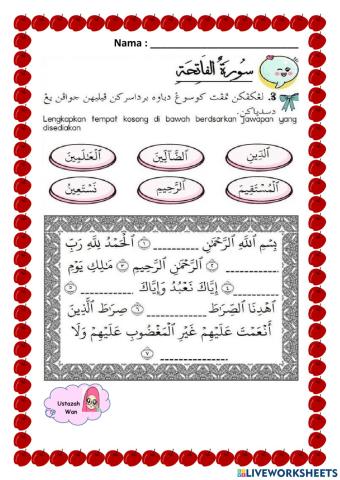 Nama : ____________________
سُورَةُ الْفَاتِحَة
3. لڠكڤكن تمڤت كوسوڠ دباوه برداسركن ڤيليهن جواڤن يڠ
دسدياكن.
Lengkapkan tempat kosong di bawah berdsarkan jawapan yang
disediakan
الدِّينِ الضَّآلِّينَ الْعَالَمِينَ
الْمُسْتَقِيمَ الرَّحِيمِ نَسْتَعِينُ
بِسْمِ اللَّهِ الرَّحْمَٰنِ __________ ١ الْحَمْدُ لِلَّهِ رَبِّ
__________ ٢ الرَّحْمَٰنِ الرَّحِيمِ ٣ مَالِكِ يَوْمِ
__________ ٤ إِيَّاكَ نَعْبُدُ وَإِيَّاكَ __________ ٥
اهْدِنَا الصِّرَاطَ __________ ٦ صِرَاطَ الَّذِينَ
أَنْعَمْتَ عَلَيْهِمْ غَيْرِ الْمَغْضُوبِ عَلَيْهِمْ وَلَا
__________ ٧
Ustazah
Wan
LIVEWORKSHEETS